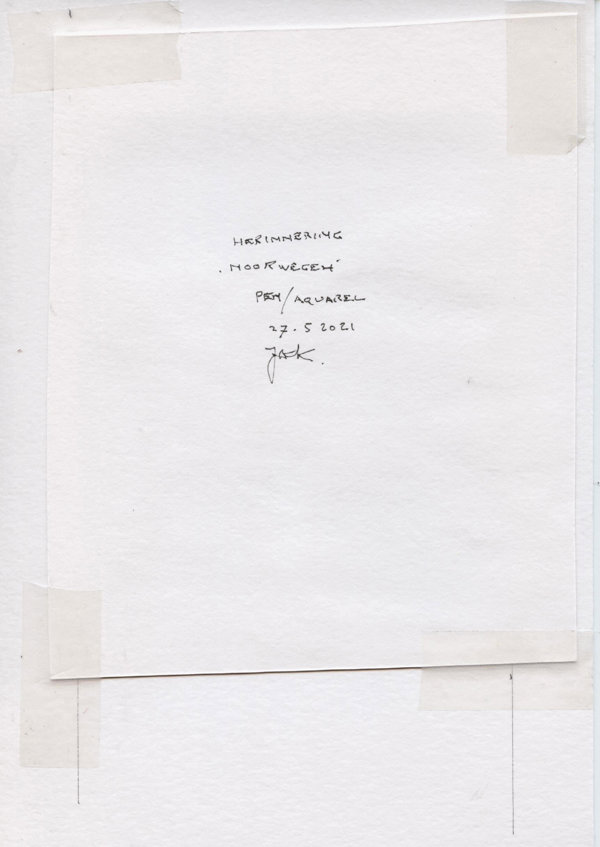 HERINNERING
"NOORWEGEN"
PEN/AQUAREL
27.5 2021